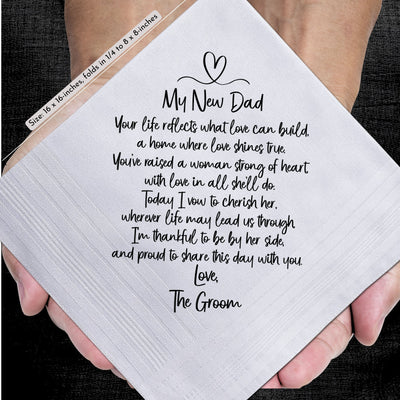 Size: 16 x 16-inches, folds in 1/4 to 8 x 8-inches
My New Dad
Your life reflects what love can build,
a home where love shines true.
You've raised a woman strong of heart
with love in all she'll do.
Today I vow to cherish her,
wherever life may lead us through.
I'm thankful to be by her side,
and proud to share this day with you.
Love,
The Groom